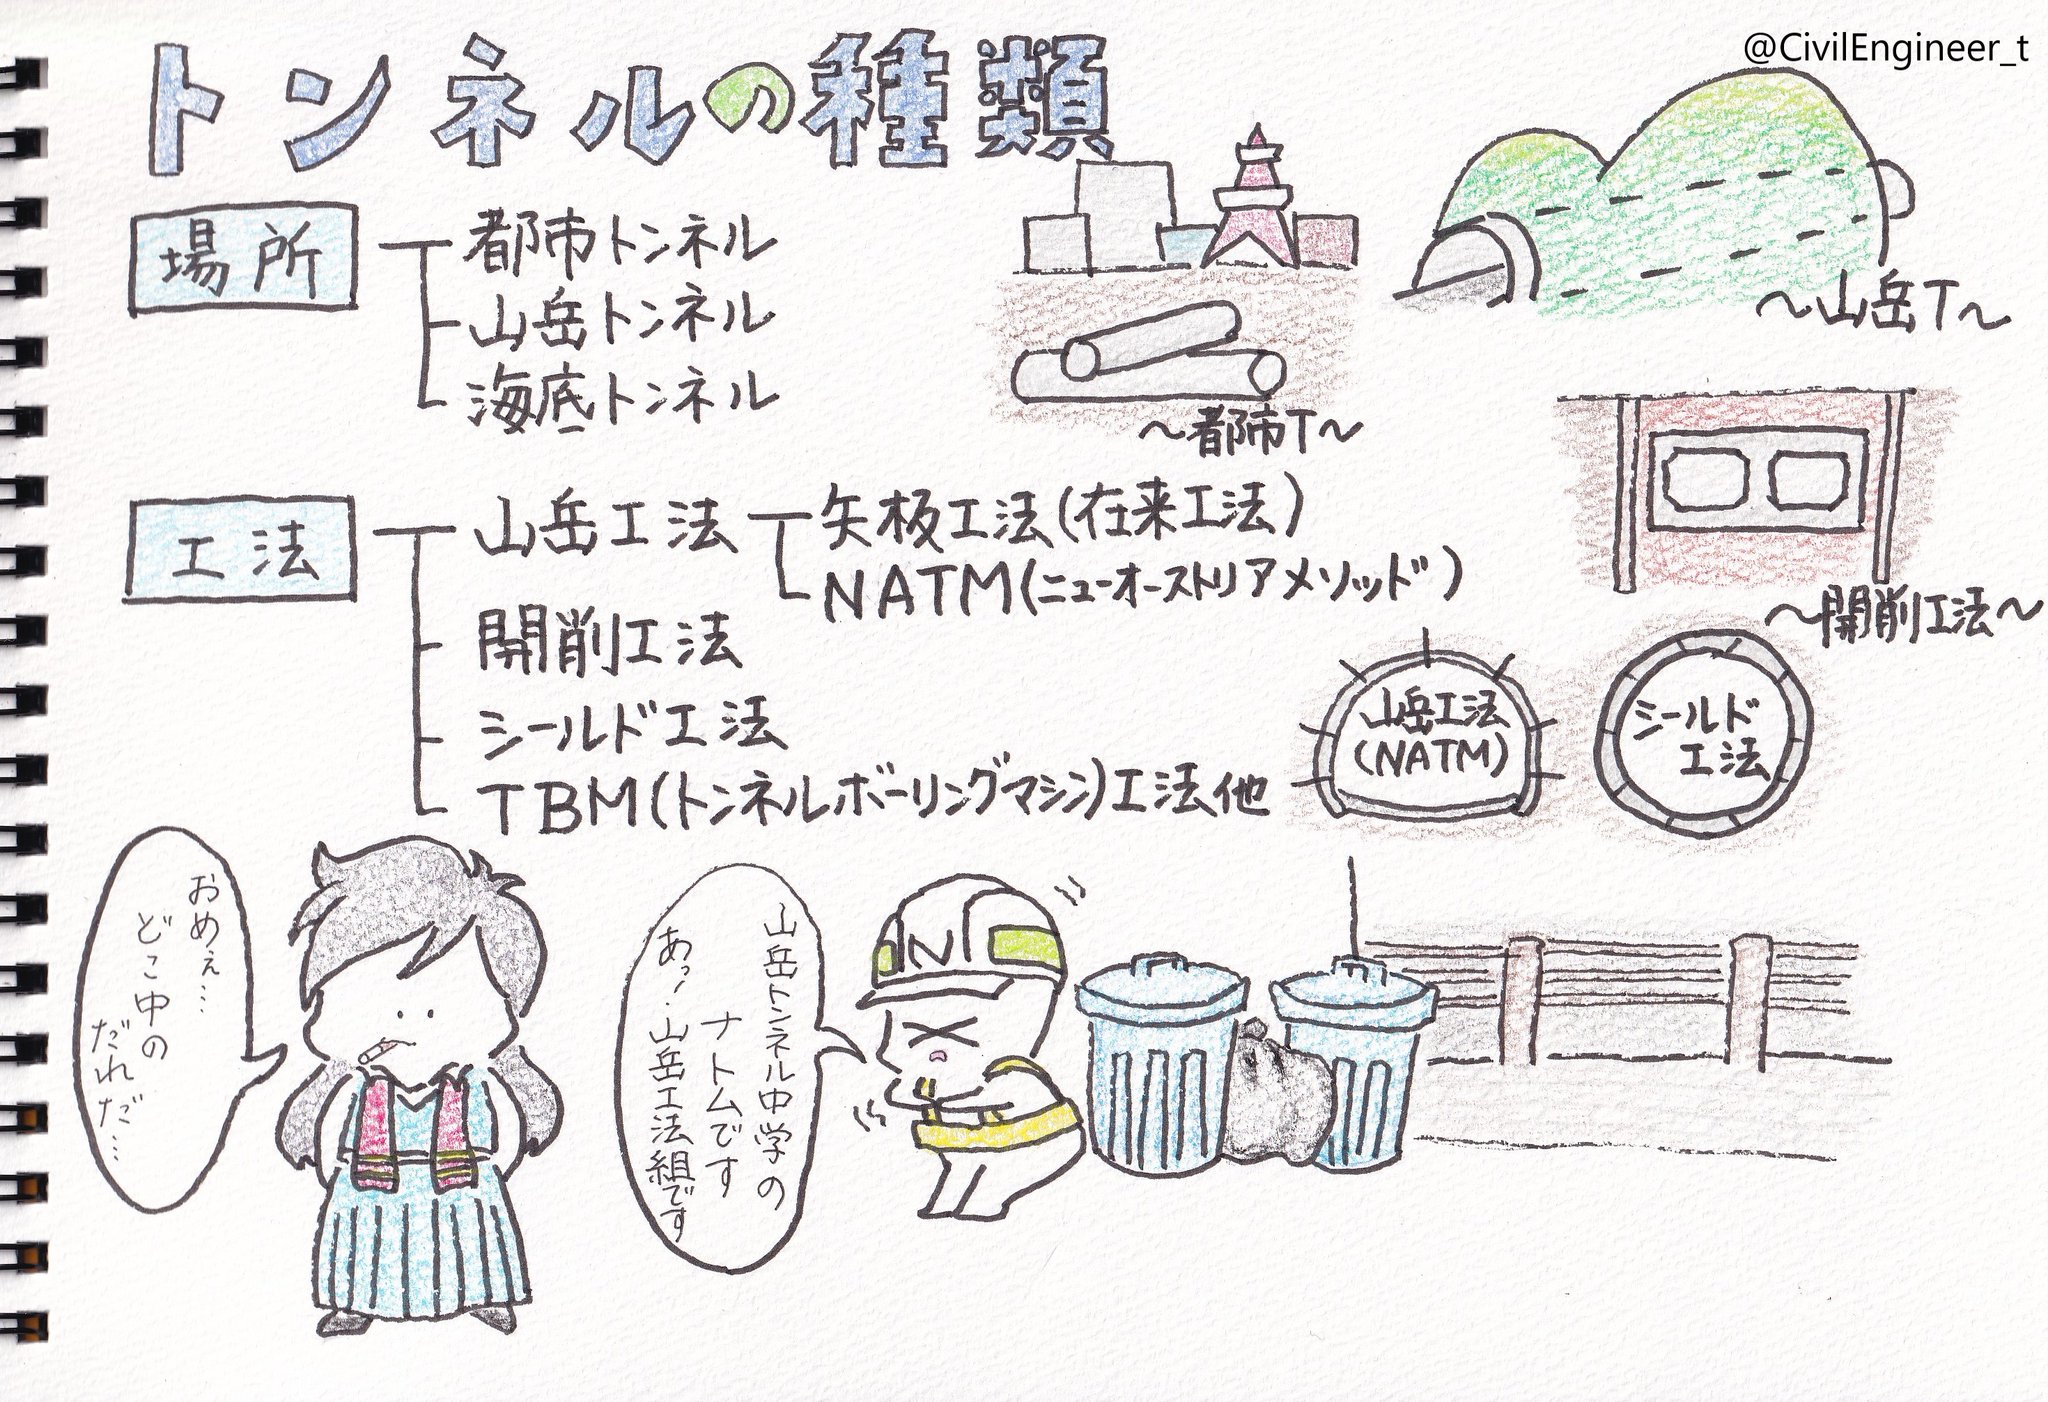 @CivilEngineer_t
トンネルの種類
場所
都市トンネル
山岳トンネル
海底トンネル
～都市T～
～山岳T～
工法
山岳工法
矢板工法(在来工法)
NATM(ニューオーストリアメソッド)
開削工法
シールド工法
TBM(トンネルボーリングマシン)工法他
～開削工法～
山岳工法
(NATM)
シールド
工法
おめぇ…
どこ中の
だれだ…
山岳トンネル中学の
ナトムです
あっ、山岳工法組です
N